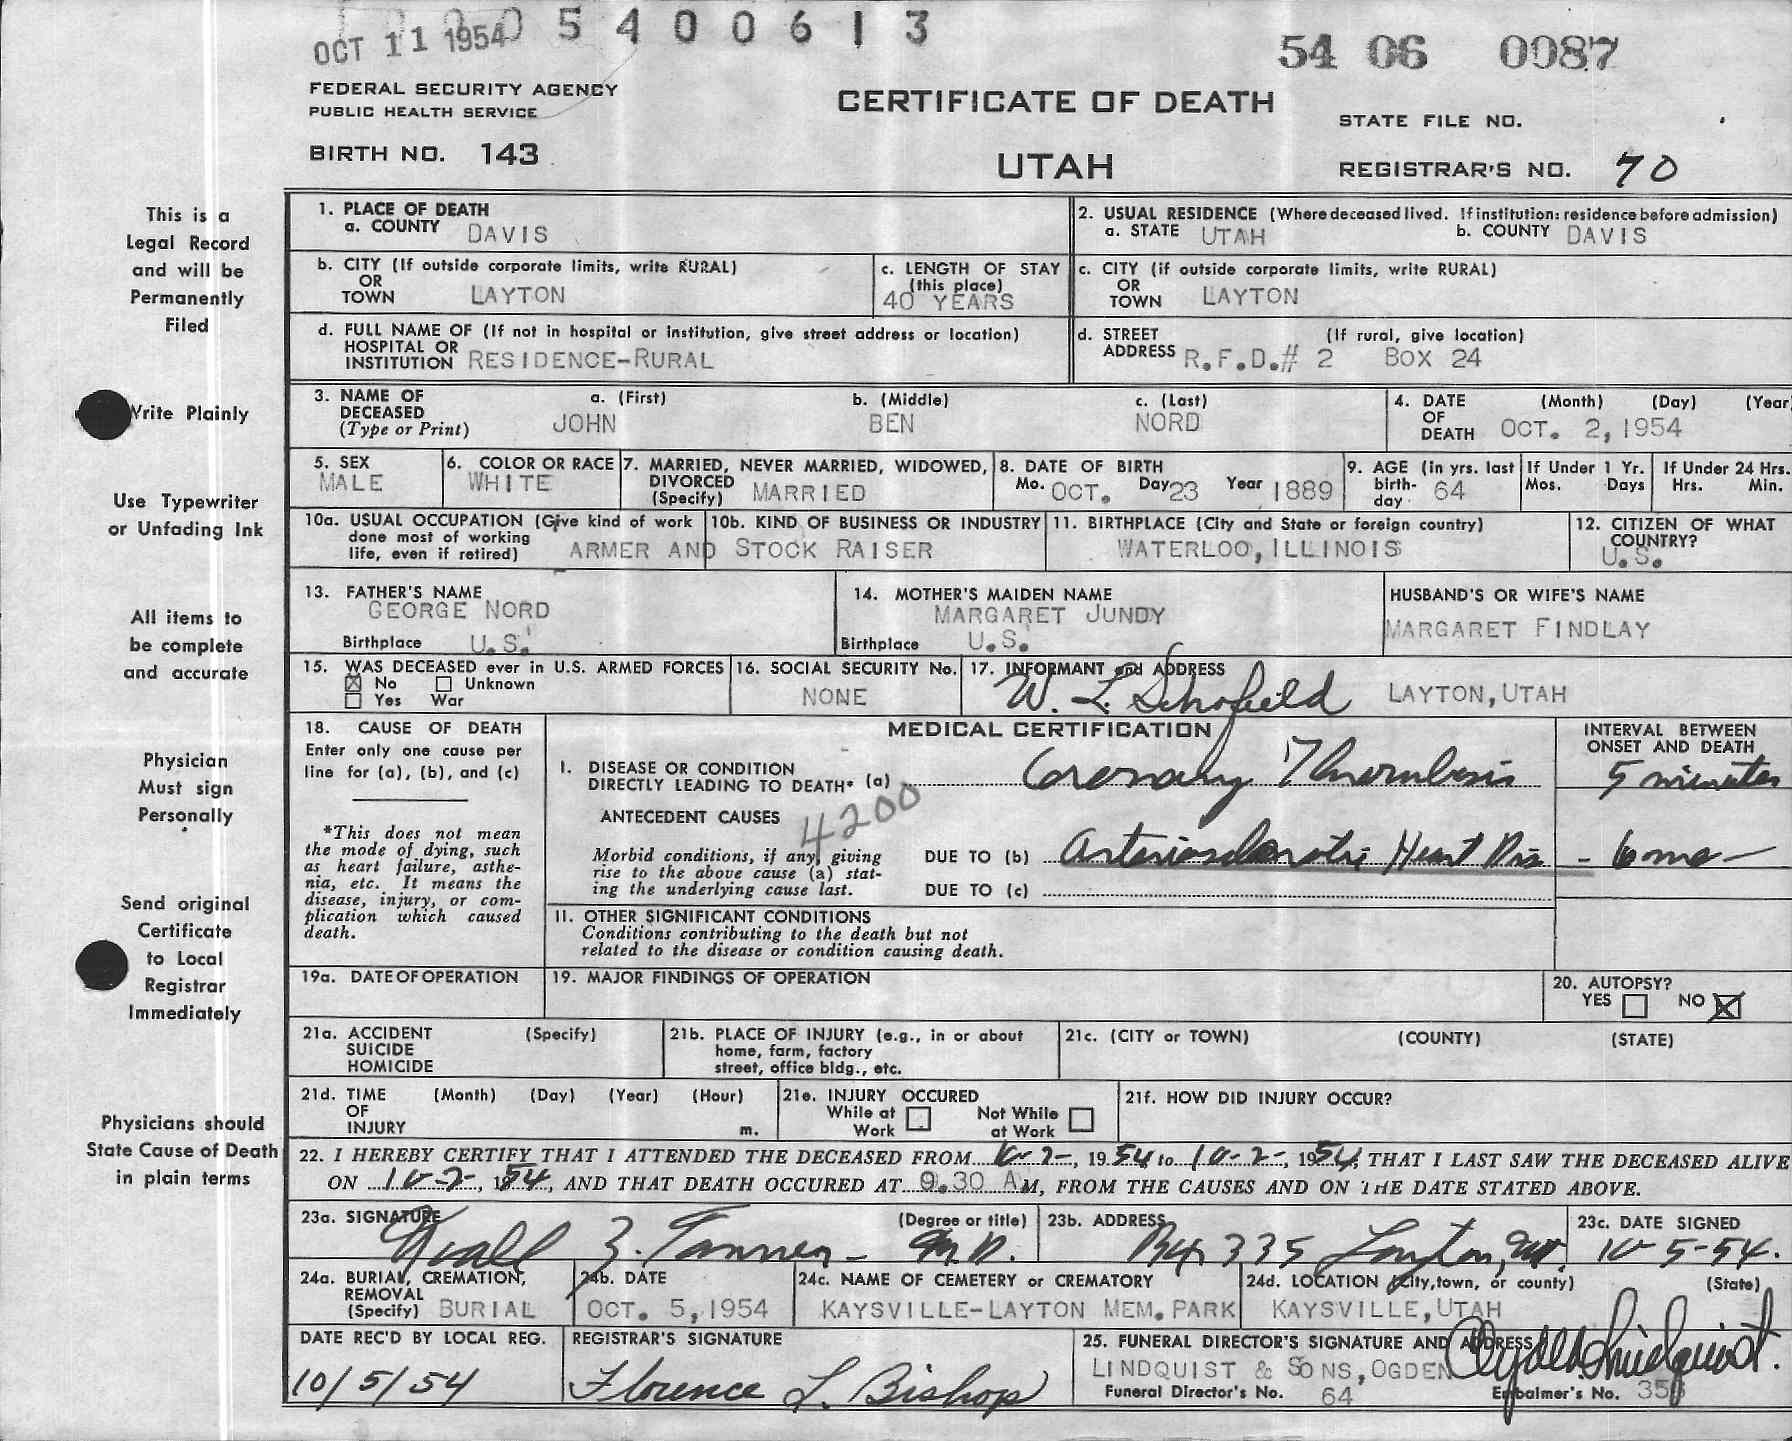 OCT 11 1954 5 4 0 0 6 1 3
54 06 0087
FEDERAL SECURITY AGENCY
PUBLIC HEALTH SERVICE
CERTIFICATE OF DEATH
STATE FILE NO.
BIRTH NO. 143
UTAH
REGISTRAR'S NO. 70
This is a
Legal Record
and will be
Permanently
Filed
Write Plainly
Use Typewriter
or Unfading Ink
All items to
be complete
and accurate
Physician
Must sign
Personally
Send original
Certificate
to Local
Registrar
Immediately
Physicians should
State Cause of Death
in plain terms
1. PLACE OF DEATH
a. COUNTY DAVIS
2. USUAL RESIDENCE (Where deceased lived. If institution: residence before admission)
a. STATE UTAH b. COUNTY DAVIS
b. CITY (If outside corporate limits, write RURAL)
OR
TOWN LAYTON
c. LENGTH OF STAY
(this place)
40 YEARS
c. CITY (if outside corporate limits, write RURAL)
OR
TOWN LAYTON
d. FULL NAME OF (If not in hospital or institution, give street address or location)
HOSPITAL OR
INSTITUTION RESIDENCE-RURAL
d. STREET (If rural, give location)
ADDRESS R.F.D.# 2 BOX 24
3. NAME OF
DECEASED
(Type or Print)
a. (First) b. (Middle) c. (Last)
JOHN BEN NORD
4. DATE (Month) (Day) (Year
OF
DEATH OCT. 2, 1954
5. SEX
MALE
6. COLOR OR RACE
WHITE
7. MARRIED, NEVER MARRIED, WIDOWED,
DIVORCED
(Specify) MARRIED
8. DATE OF BIRTH
Mo. OCT. Day 23 Year 1889
9. AGE (in yrs. last
birth-
day- 64
If Under 1 Yr.
Mos. Days
If Under 24 Hrs.
Hrs. Min.
10a. USUAL OCCUPATION (Give kind of work
done most of working
life, even if retired) ARMER AND
10b. KIND OF BUSINESS OR INDUSTRY
STOCK RAISER
11. BIRTHPLACE (City and State or foreign country)
WATERLOO, ILLINOIS
12. CITIZEN OF WHAT
COUNTRY?
U.S.
13. FATHER'S NAME
GEORGE NORD
Birthplace U.S.
14. MOTHER'S MAIDEN NAME
MARGARET JUNDY
Birthplace U.S.
HUSBAND'S OR WIFE'S NAME
MARGARET FINDLAY
15. WAS DECEASED ever in U.S. ARMED FORCES
☒ No ☐ Unknown
☐ Yes War
16. SOCIAL SECURITY No.
NONE
17. INFORMANT and ADDRESS
W. L. Schofield LAYTON, UTAH
18. CAUSE OF DEATH
Enter only one cause per
line for (a), (b), and (c)
*This does not mean
the mode of dying, such
as heart failure, asthe-
nia, etc. It means the
disease, injury, or com-
plication which caused
death.
MEDICAL CERTIFICATION
INTERVAL BETWEEN
ONSET AND DEATH
I. DISEASE OR CONDITION
DIRECTLY LEADING TO DEATH* (a) Coronary Thrombosis 5 minutes
4200
ANTECEDENT CAUSES
Morbid conditions, if any, giving
rise to the above cause (a) stat-
ing the underlying cause last.
DUE TO (b) Arteriosclerotic Heart Dis - 6 mo -
DUE TO (c)
II. OTHER SIGNIFICANT CONDITIONS
Conditions contributing to the death but not
related to the disease or condition causing death.
19a. DATE OF OPERATION
19. MAJOR FINDINGS OF OPERATION
20. AUTOPSY?
YES ☐ NO ☒
21a. ACCIDENT (Specify)
SUICIDE
HOMICIDE
21b. PLACE OF INJURY (e.g., in or about
home, farm, factory
street, office bldg., etc.
21c. (CITY or TOWN) (COUNTY) (STATE)
21d. TIME (Month) (Day) (Year) (Hour)
OF
INJURY m.
21e. INJURY OCCURED
While at Work ☐ Not While at Work ☐
21f. HOW DID INJURY OCCUR?
22. I HEREBY CERTIFY THAT I ATTENDED THE DECEASED FROM 10-2-, 1954 to 10-2-, 1954, THAT I LAST SAW THE DECEASED ALIVE
ON 10-2-, 1954, AND THAT DEATH OCCURED AT 9.30 AM, FROM THE CAUSES AND ON THE DATE STATED ABOVE.
23a. SIGNATURE (Degree or title)
Noall Z. Tanner - M.D.
23b. ADDRESS
Bx 335 Layton, Ut.
23c. DATE SIGNED
10-5-54.
24a. BURIAL, CREMATION,
REMOVAL
(Specify) BURIAL
24b. DATE
OCT. 5, 1954
24c. NAME OF CEMETERY or CREMATORY
KAYSVILLE-LAYTON MEM. PARK
24d. LOCATION (City, town, or county) (State)
KAYSVILLE, UTAH
DATE REC'D BY LOCAL REG.
10/5/54
REGISTRAR'S SIGNATURE
Florence L. Bishop
25. FUNERAL DIRECTOR'S SIGNATURE AND ADDRESS
LINDQUIST & SONS, OGDEN Clyde Lindquist.
Funeral Director's No. 64
Embalmer's No.